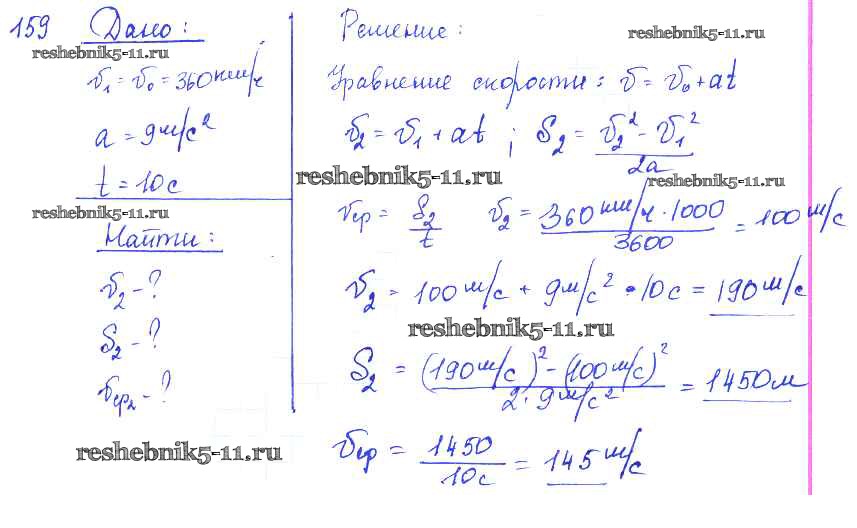 159 Дано:
reshebnik5-11.ru
v₁ = v₀ = 360 км/ч
a = 9 м/с²
t = 10 с
reshebnik5-11.ru
Найти:
v₂ - ?
S₂ - ?
vср₂ - ?
reshebnik5-11.ru
Решение:
reshebnik5-11.ru
Уравнение скорости: v = v₀ + at
v₂ = v₁ + at ; S₂ = (v₂² - v₁²) / 2a
reshebnik5-11.ru
reshebnik5-11.ru
vср = S₂ / t v₂ = 360 км/ч · 1000 / 3600 = 100 м/с
v₂ = 100 м/с + 9 м/с² · 10 с = 190 м/с
reshebnik5-11.ru
S₂ = ((190 м/с)² - (100 м/с)²) / 2 · 9 м/с² = 1450 м
vср = 1450 / 10 с = 145 м/с